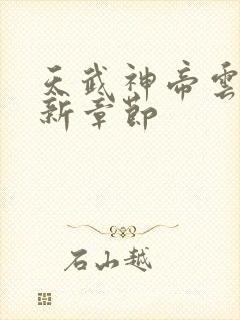 天武神帝雲
新章節
石小越